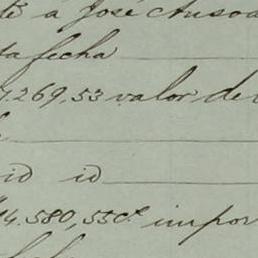 á José Ansoa
ta fecha
7.269,53 valor de
id id
14.580,55 c.^s impor